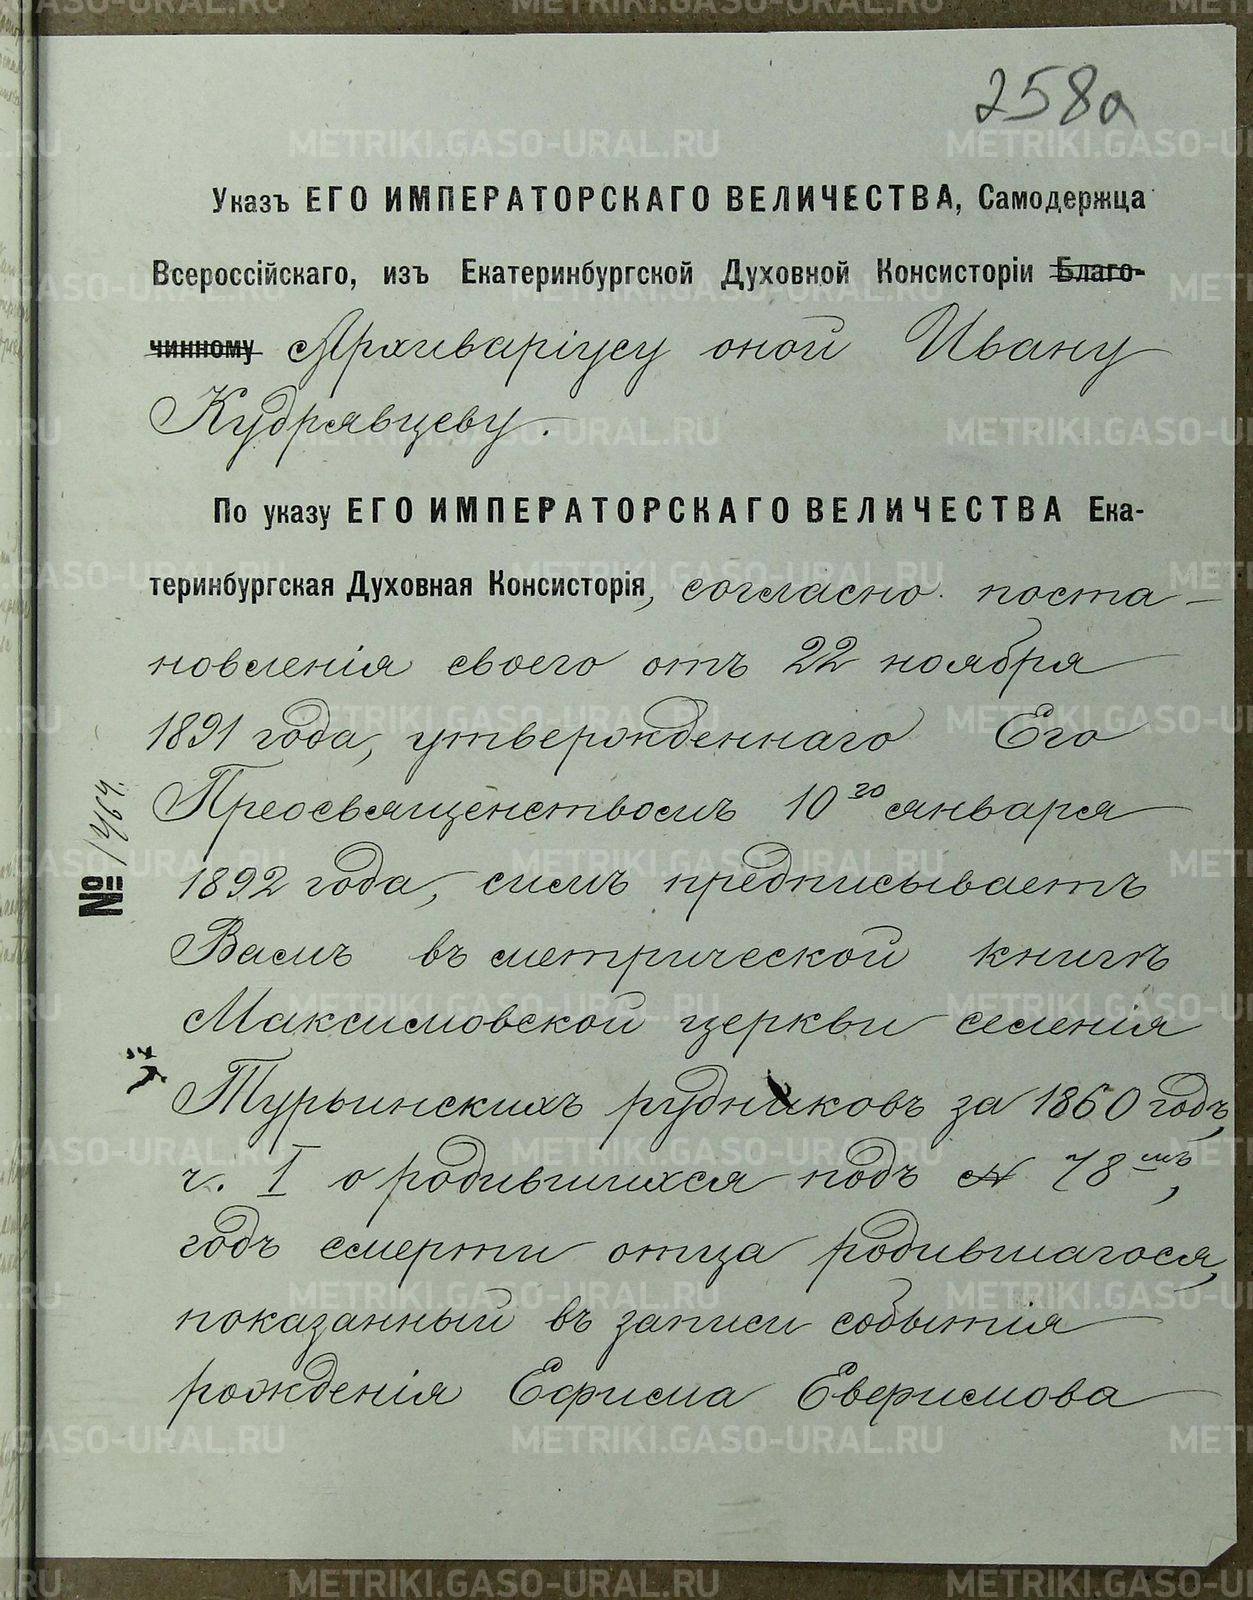 258а
Указъ ЕГО ИМПЕРАТОРСКАГО ВЕЛИЧЕСТВА, Самодержца
Всероссійскаго, изъ Екатеринбургской Духовной Консисторіи Благо-
чинному Архиваріусу оной Ивану
Кудрявцеву.
По указу ЕГО ИМПЕРАТОРСКАГО ВЕЛИЧЕСТВА Ека-
теринбургская Духовная Консисторія, согласно поста-
новленія своего отъ 22 ноября
1891 года, утвержденнаго Его
Преосвященствомъ 10го января
1892 года, симъ предписываетъ
Вамъ въ метрической книгѣ
Максимовской церкви селенія
Турьинскихъ рудниковъ за 1860 годъ,
ч. I о родившихся подъ № 78мъ,
годъ смерти отца родившагося,
показанный въ записи событія
рожденія Ефима Еверимова
№ 1464.
METRIKI.GASO-URAL.RU